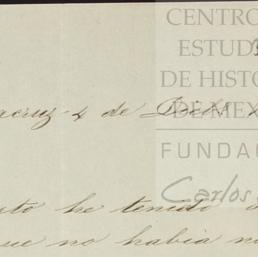 CENTRO
ESTUD
DE HISTO
DE MEX
FUNDAC
Carlos
acruz 4 de
sto he tenido
que no habia no